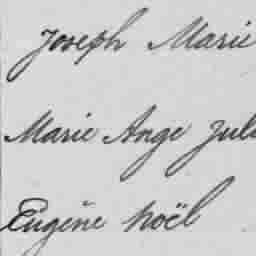 Joseph Marie
Marie Ange Jul
Eugène Noël